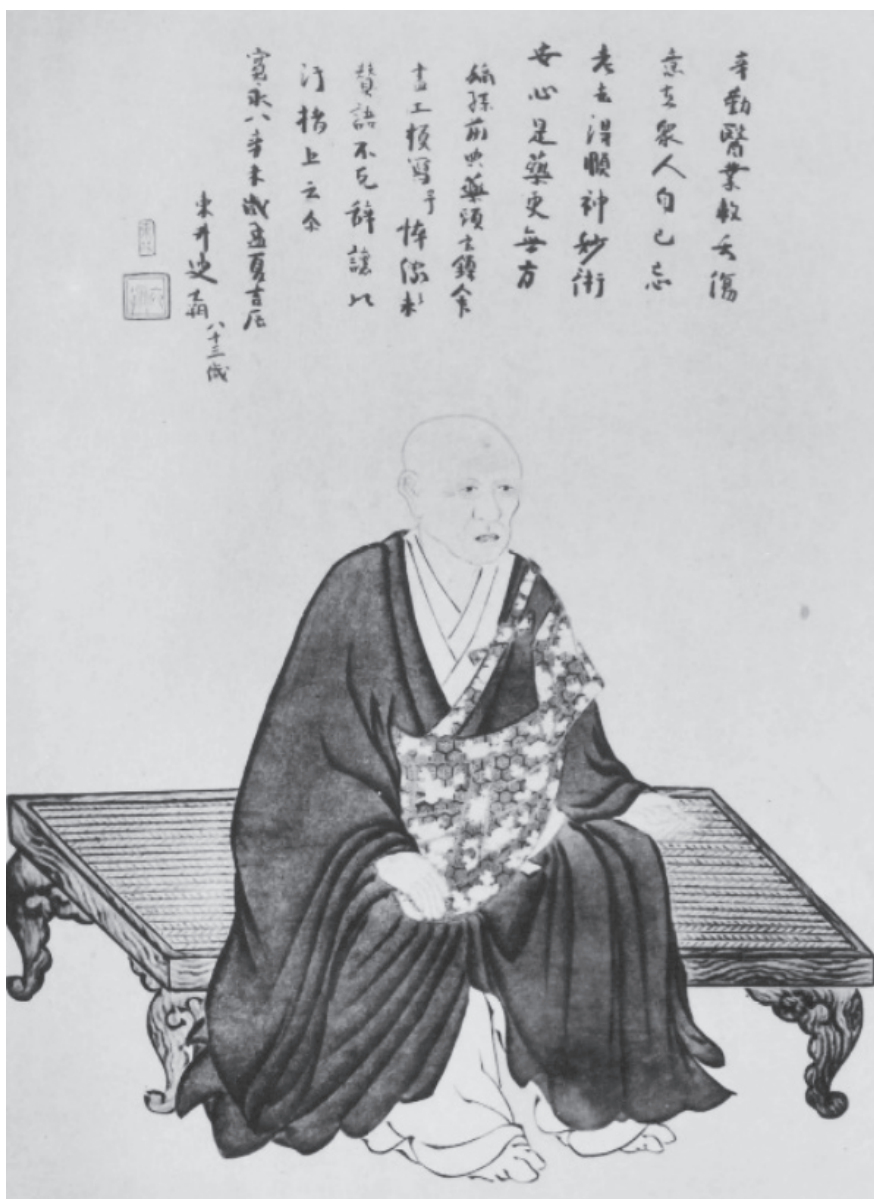 辛勤醫業救夭傷
意在衆人自己忘
老去得順神妙術
安心是藥更無方
孫前典藥頭士鐘命
畫工模写予悴像求
賛語不克辞譲以
汚楮上云尒
寛永八辛未歳孟夏吉辰
東井 八十三歳